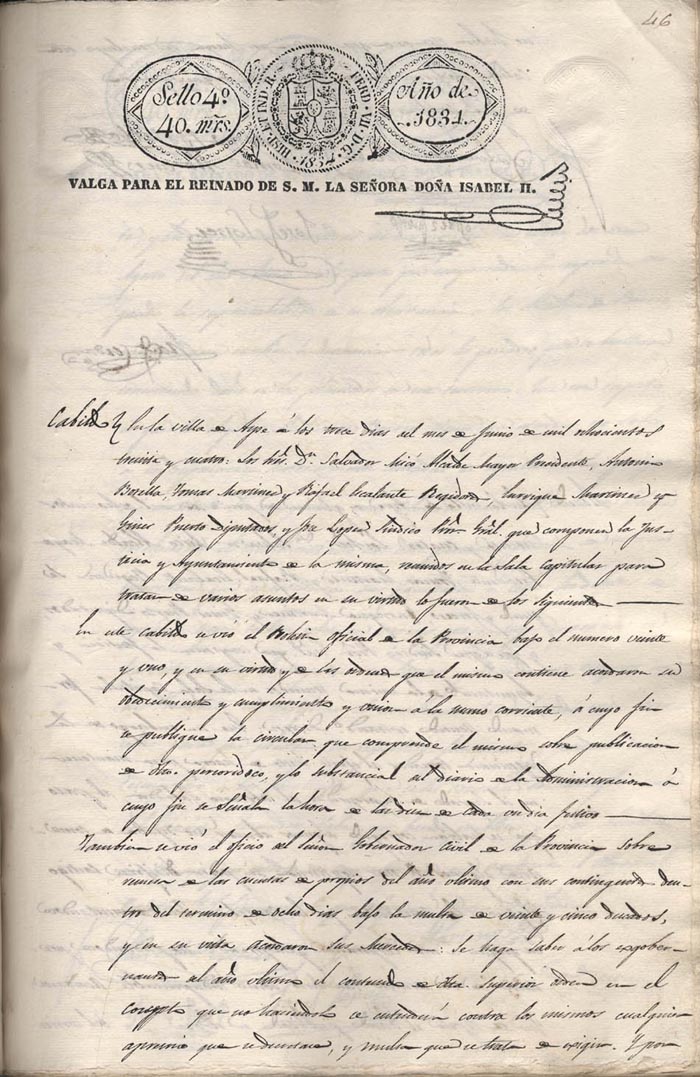 46
Sello 4º
40. mrs.
HISP. ET IND. R. FERD. VII. D. G.
1834
Año de
1834.
VALGA PARA EL REINADO DE S. M. LA SEÑORA DOÑA ISABEL II.
Cabildo En la villa de Aspe á los trece dias del mes de Junio de mil ochocientos
treinta y cuatro: Los Sres. Dn. Salvador Micó Alcalde Mayor Presidente, Antonio
Botella, Tomas Martinez y Rafael Escalante Regidores, Enrrique Martinez y
Gines Puerto Diputados, y José Lopez Sindico Pror. Gral. que componen la Jus-
ticia y Ayuntamiento de la misma, reunidos en la Sala Capitular para
tratar de varios asuntos en su virtud lo fueron de los siguientes
En este cabildo se vió el Boletin oficial de la Provincia bajo el numero veinte
y uno, y en su virtud y de las ordenes que el mismo contiene acordaron su
obedecimiento y cumplimiento y union a la mano corriente, á cuyo fin
se publique la circular que comprende el mismo sobre publicacion
de dho. periodico, y lo substancial del diario de la Administracion á
cuyo fin se Señala la hora de las diez de cada un dia festivo
Tambien se vió el oficio del Señor Gobernador Civil de la Provincia sobre
remesa de las cuentas de propios del año ultimo con sus contingentes den-
tro del termino de ocho dias bajo la multa de veinte y cinco ducados,
y en su vista acordaron sus Mercedes: se haga saber á los exgober-
nantes del año ultimo el contenido de dha. superior orden en el
concepto que no haciendolo se entenderá contra los mismos cualquier
apremio que se despache, y multa que se trate de exigir. Y por